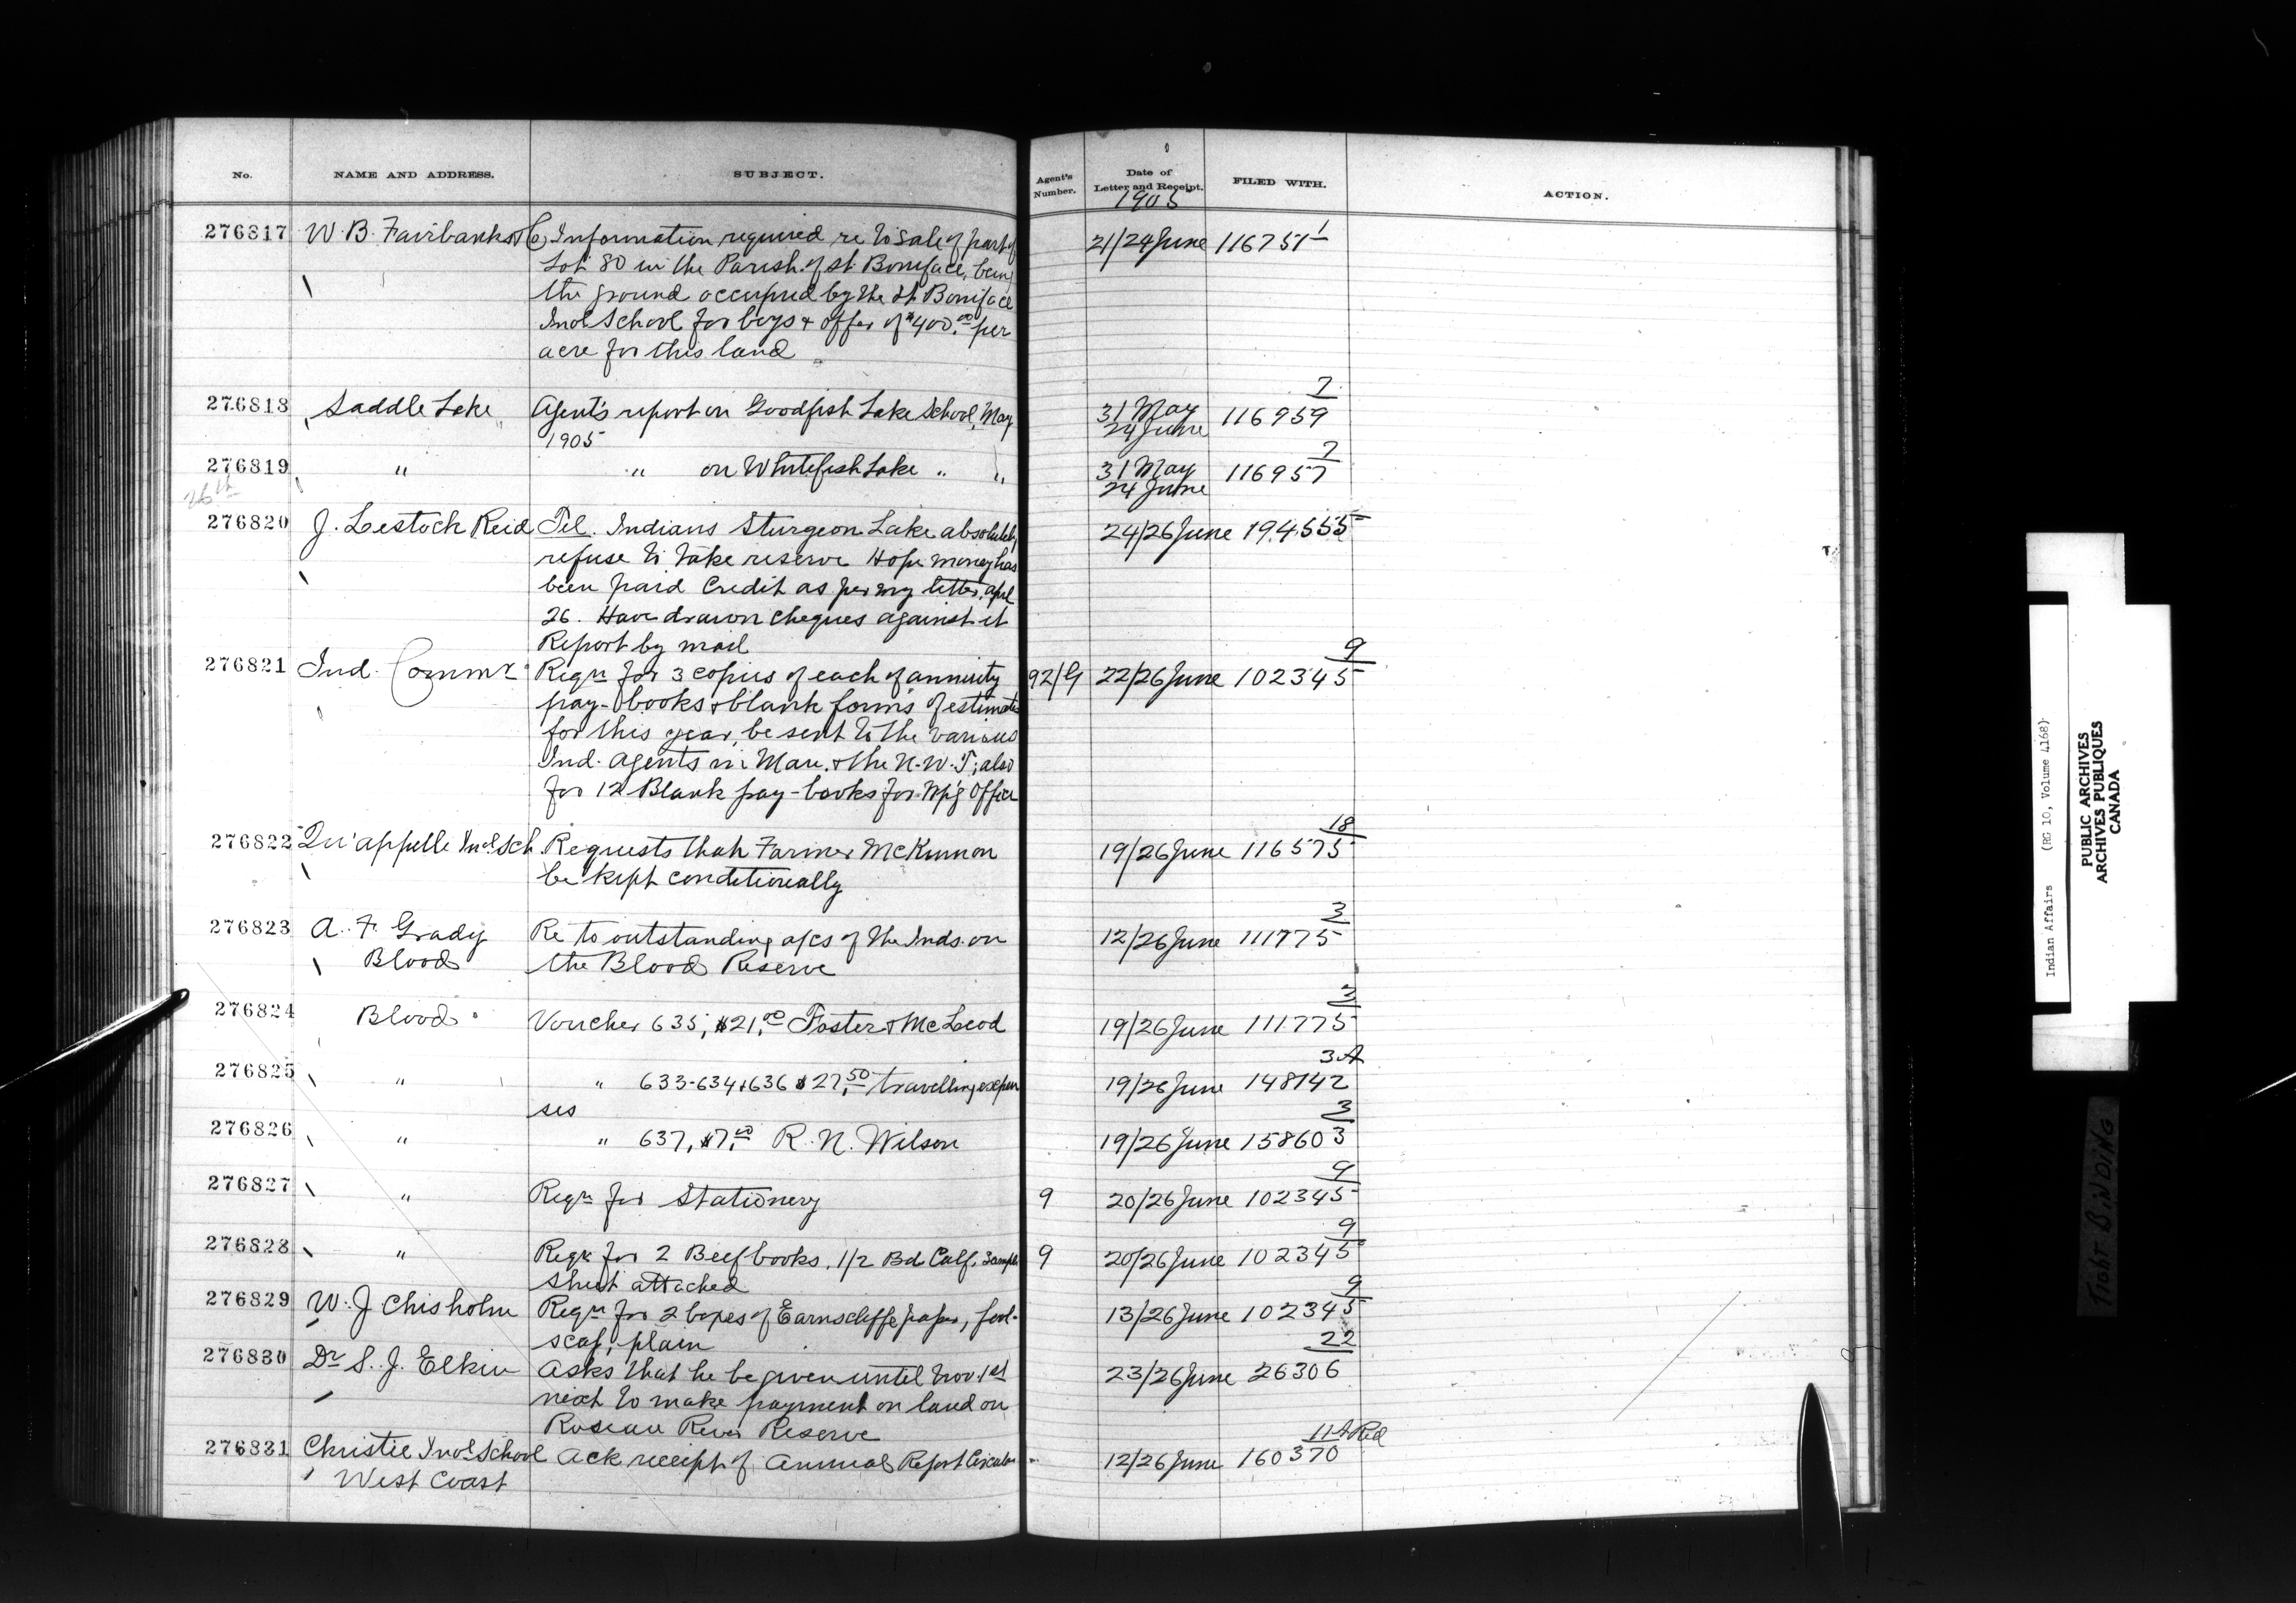 No. NAME AND ADDRESS. SUBJECT. Agent's Number. Date of Letter and Receipt. FILED WITH. ACTION.
1905
276817 W. B. Fairbanks & Co Information required re to sale of part of 21/24 June 116751 1
Lot 80 in the Parish of St. Boniface, being
the ground occupied by the St. Boniface
Indl School for boys & offer of $400.00 per
acre for this land
276818 Saddle Lake Agent's report on Goodfish Lake School, May 31 May 116959 7
1905 24 June
276819 " " on Whitefish Lake " " 31 May 116957 7
24 June
26th
276820 J. Lestock Reid Tel. Indians Sturgeon Lake absolutely 24/26 June 194555
refuse to take reserve Hope money has
been paid Credit as per my letter, Apl
26. Have drawn cheques against it
Report by mail
276821 Ind. Commr Reqn for 3 copies of each of annuity 92/G 22/26 June 102345 9
pay-books & blank forms of estimates
for this year, be sent to the various
Ind. Agents in Man. & the N.W.T; also
for 12 Blank pay-books for Wpg Office
276822 Qu'appelle Indl Sch. Requests that Farmer McKinnon 19/26 June 116575 18
be kept conditionally
276823 A. F. Grady Re to outstanding a/cs of the Inds. on 12/26 June 111775 3
Blood the Blood Reserve
276824 Blood Voucher 635, $21.00 Foster & McLeod 19/26 June 111775 3
276825 " " 633-634 & 636 $27.50 travelling expen 19/26 June 148142 3A
ses
276826 " " 637, $7.00 R. N. Wilson 19/26 June 158603 3
276827 " Reqn for Stationery 9 20/26 June 102345 9
276828 " Reqn for 2 Beef books, 1/2 Bd Calf, Sample 9 20/26 June 102345 9
sheet attached
276829 W. J. Chisholm Reqn for 2 boxes of Earnscliffe paper, fool- 13/26 June 102345 9
scap, plain
276830 Dr. S. J. Elkin Asks that he be given until Nov. 1st 23/26 June 26306 22
next to make payment on land on
Roseau River Reserve
276831 Christie Indl School Ack receipt of Annual Report Circular 12/26 June 160370 11A Red
West Coast
Indian Affairs (RG 10, Volume 4168)
PUBLIC ARCHIVES
ARCHIVES PUBLIQUES
CANADA
TIGHT BINDING